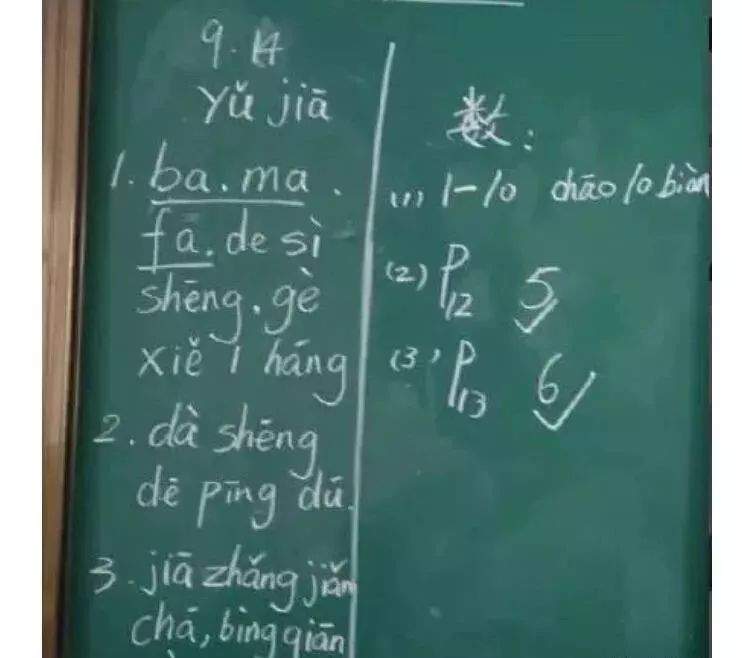 9.14
Yǔ jiā
1. ba.ma.
fā.de sì
shēng.gè
xiě 1 háng
2. dà shēng
dē pīng dū.
3. jiā zhǎng jiǎn
chá, bìng qiān
数:
(1) 1-10 chāo 10 biàn
(2) P12 5✓
(3) P13 6✓